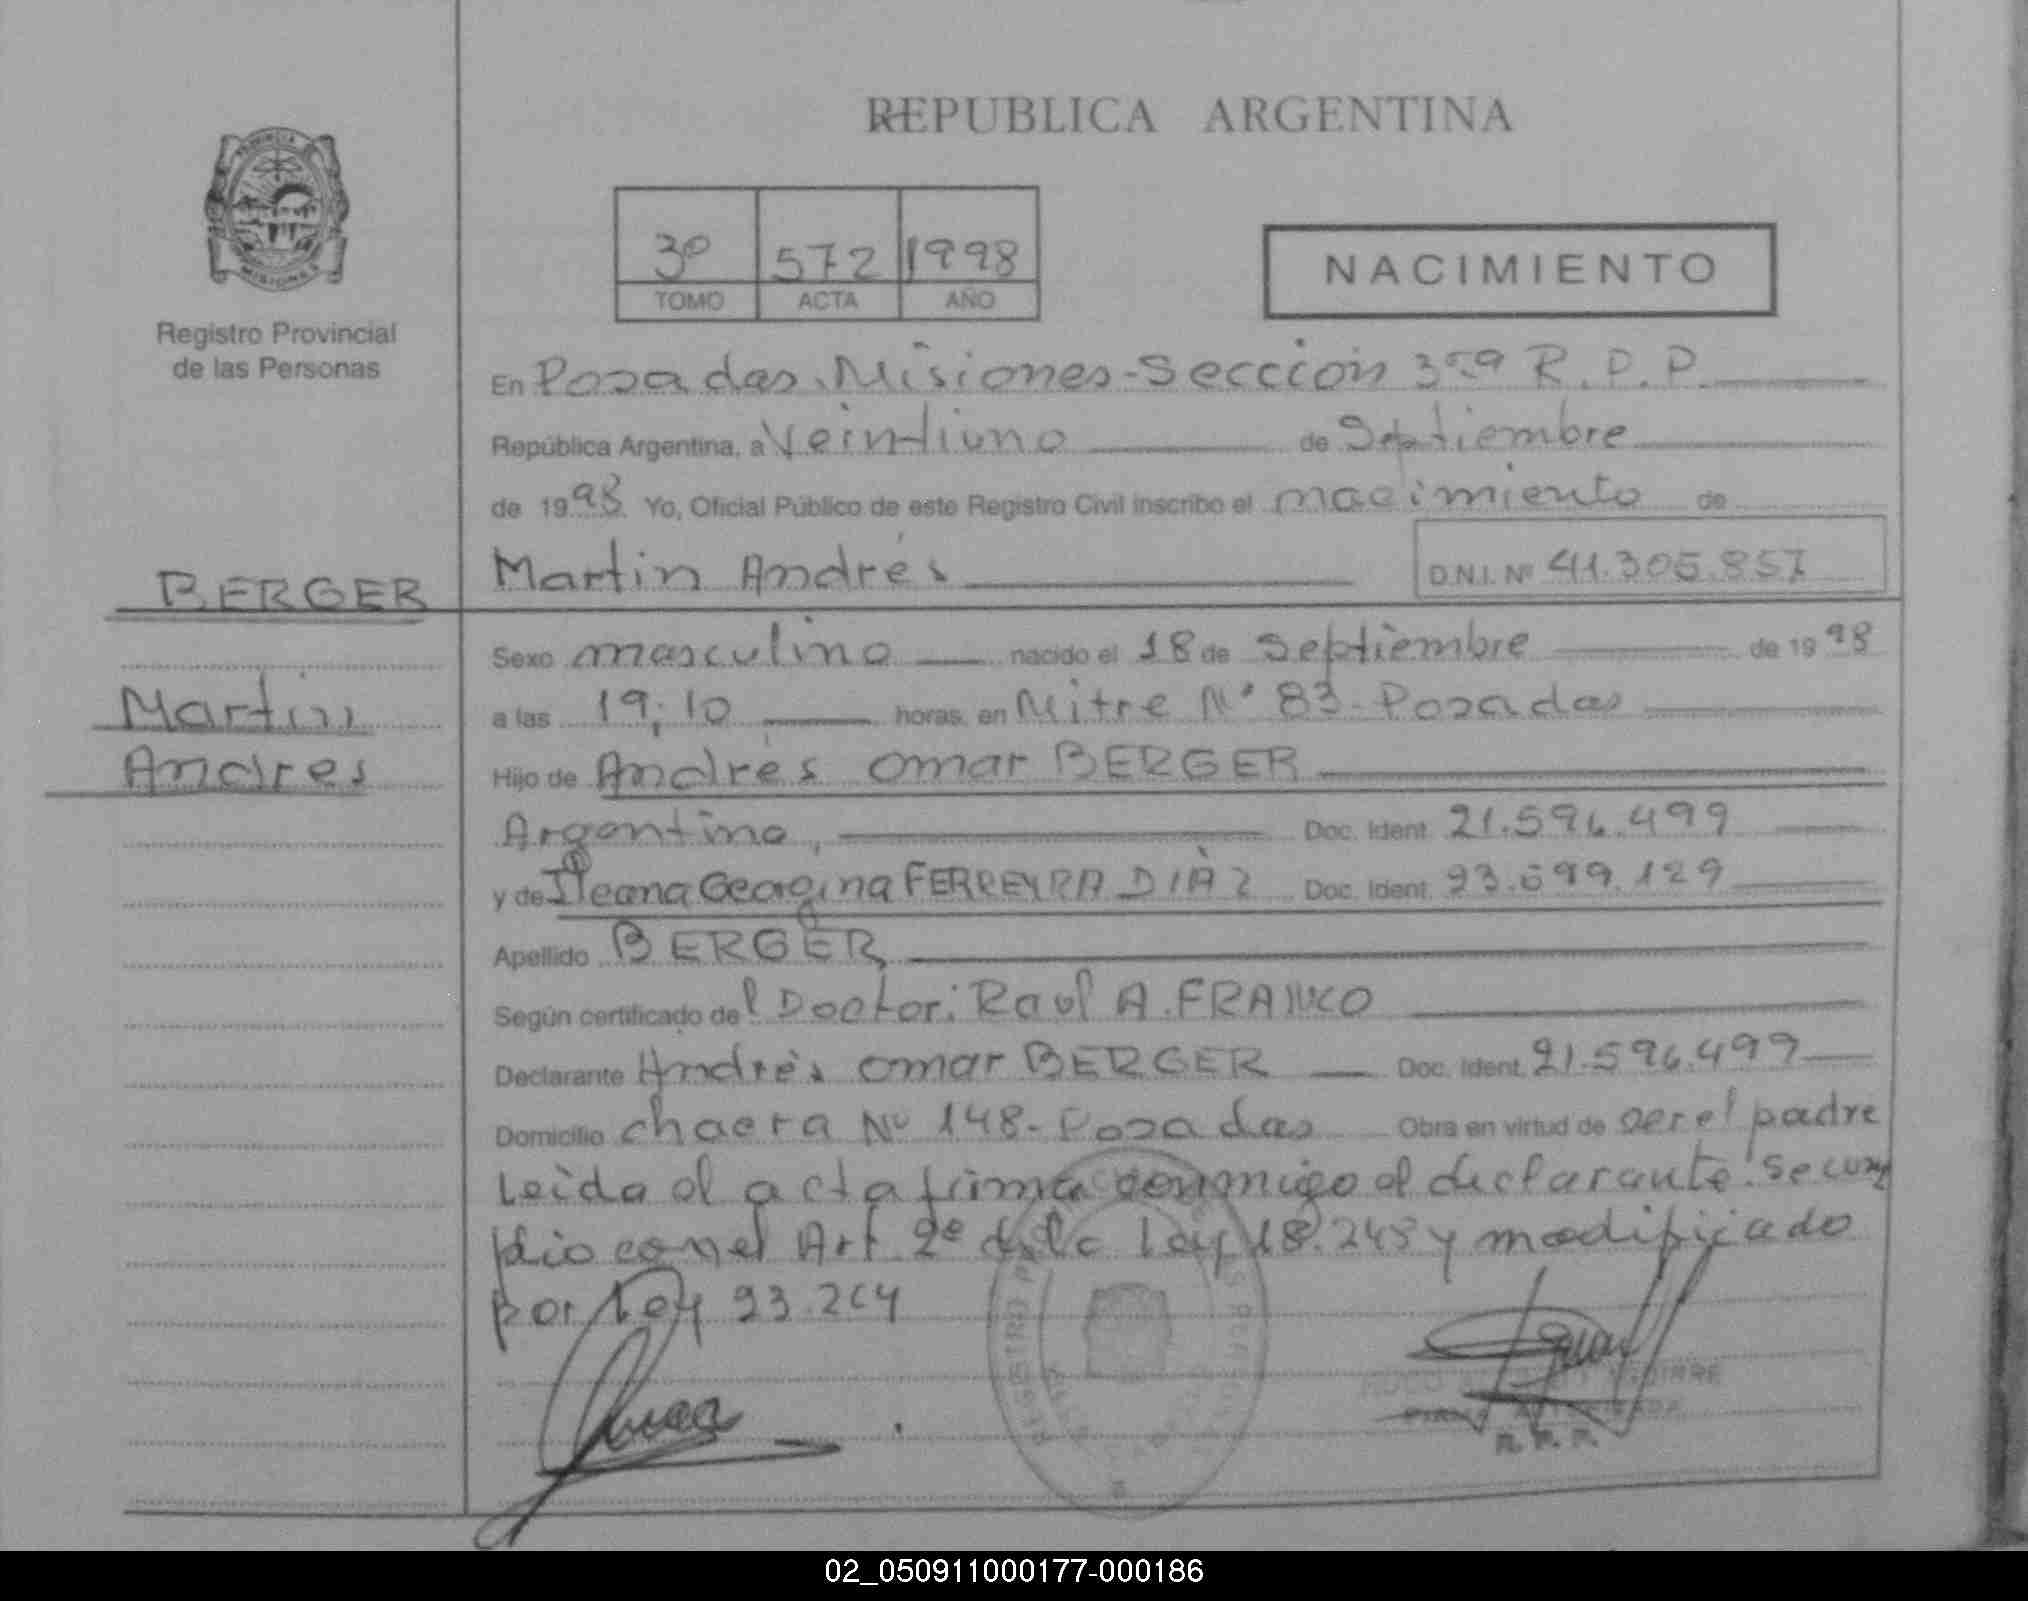 REPUBLICA ARGENTINA
3º 572 1998
TOMO ACTA AÑO
NACIMIENTO
PROVINCIA
MISIONES
Registro Provincial
de las Personas
En Posadas, Misiones-Sección 3ra R.P.P.
República Argentina, a Veintiuno de Septiembre
de 1998 Yo, Oficial Público de este Registro Civil inscribo el nacimiento de
Martin Andrés D.N.I. Nº 41.305.857
BERGER
Martin
Andres
Sexo masculino nacido el 18 de Septiembre de 1998
a las 19:10 horas, en Mitre Nº 83-Posadas
Hijo de Andrés Omar BERGER
Argentino, Doc. Ident. 21.596.499
y de Ileana Georgina FERREYRA DIAZ Doc. Ident. 23.699.129
Apellido BERGER
Según certificado del Doctor: Raul A. FRANCO
Declarante Andrés Omar BERGER Doc. Ident. 21.596.499
Domicilio chacra Nº 148-Posadas Obra en virtud de ser el padre
Leída el acta firma conmigo el declarante. Se cum
plio con el Art 2º de la Ley 18.248 y modificado
por Ley 23.264
AGUIRRE
FIRMA AUTORIZADA
R.P.P.
02_050911000177-000186